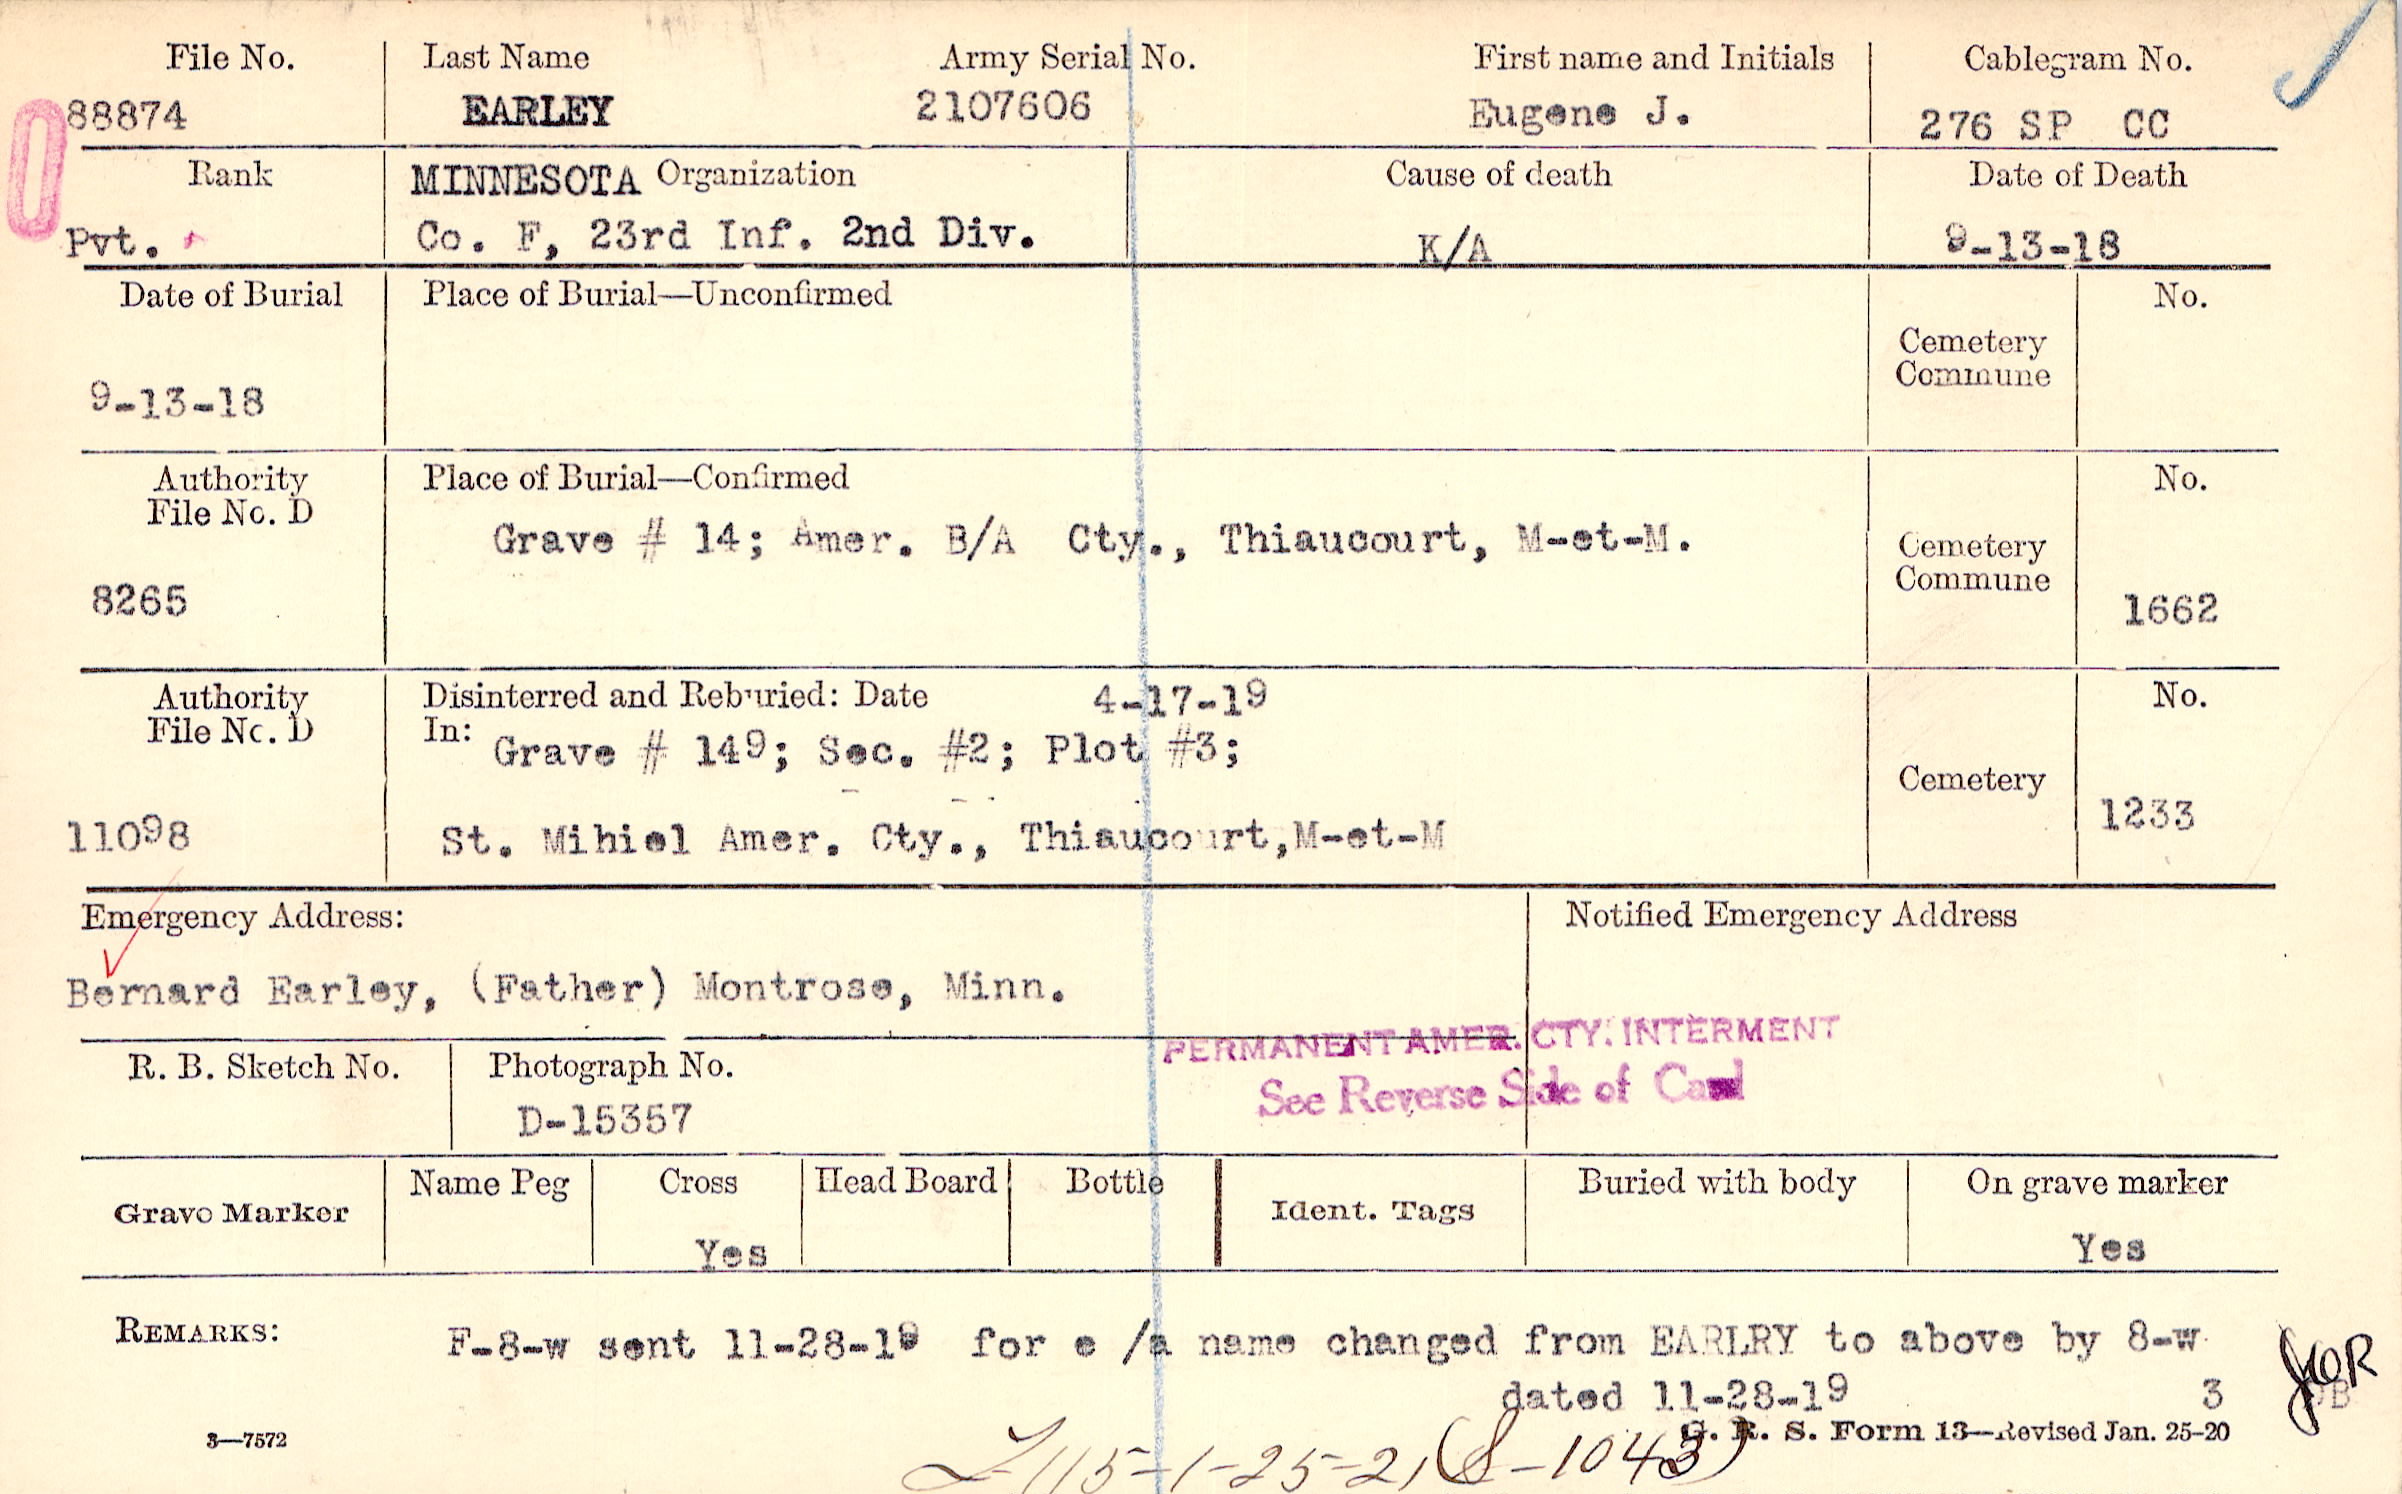 File No. Last Name Army Serial No. First name and Initials Cablegram No.
88874 EARLEY 2107606 Eugene J. 276 SP CC
Rank MINNESOTA Organization Cause of death Date of Death
Pvt. Co. F, 23rd Inf. 2nd Div. K/A 9-13-18
Date of Burial Place of Burial—Unconfirmed No.
Cemetery
Commune
9-13-18
Authority Place of Burial—Confirmed No.
File No. D
Grave # 14; Amer. B/A Cty., Thiaucourt, M-et-M. Cemetery
Commune
8265 1662
Authority Disinterred and Reburied: Date 4-17-19 No.
File No. D In: Grave # 149; Sec. #2; Plot #3;
Cemetery
11098 St. Mihiel Amer. Cty., Thiaucourt,M-et-M 1233
Emergency Address: Notified Emergency Address
Bernard Earley, (Father) Montrose, Minn.
PERMANENT AMER. CTY. INTERMENT
R. B. Sketch No. Photograph No. See Reverse Side of Card
D-15357
Name Peg Cross Head Board Bottle Buried with body On grave marker
Grave Marker Ident. Tags
Yes Yes
REMARKS: F-8-w sent 11-28-19 for e /a name changed from EARLRY to above by 8-w
dated 11-28-19 3
3—7572 G. R. S. Form 13—Revised Jan. 25-20
(S-1043)